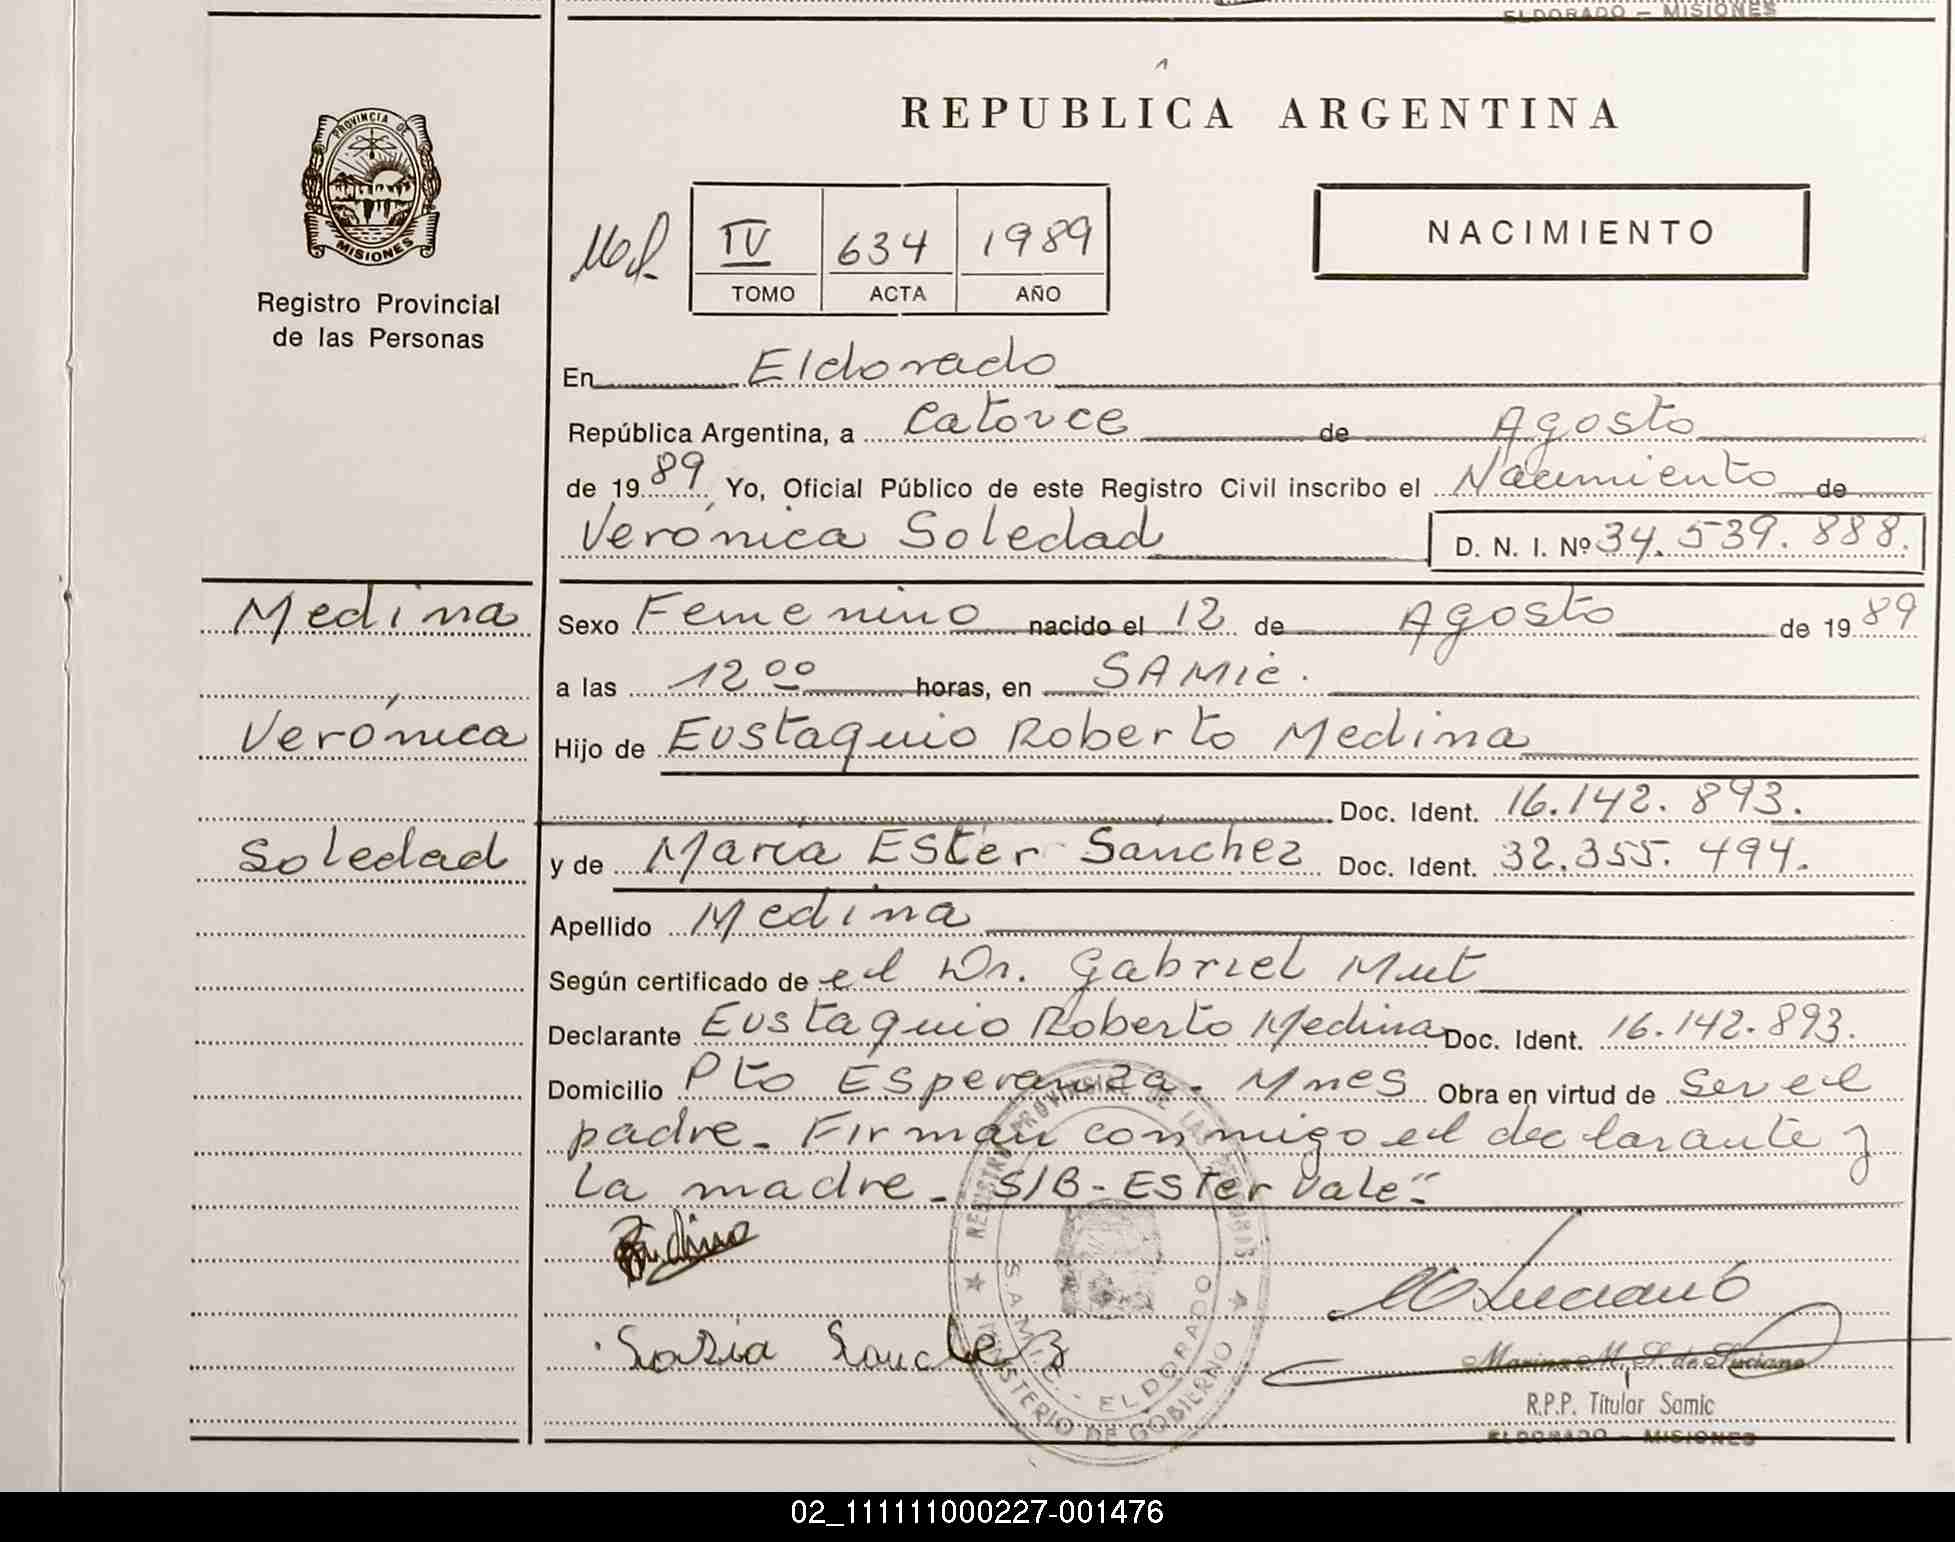 ELDORADO — MISIONES
REPUBLICA ARGENTINA
PROVINCIA DE
MISIONES
Registro Provincial
de las Personas
IV 634 1989
TOMO ACTA AÑO
NACIMIENTO
En Eldorado
República Argentina, a Catorce de Agosto
de 1989, Yo, Oficial Público de este Registro Civil inscribo el Nacimiento de
Verónica Soledad D. N. I. Nº 34.539.888.
Medina
Verónica
Soledad
Sexo Femenino nacido el 12 de Agosto de 1989
a las 12 00 horas, en SAMIC.
Hijo de Eustaquio Roberto Medina
Doc. Ident. 16.142.893.
y de María Ester Sánchez Doc. Ident. 32.355.494.
Apellido Medina
Según certificado de el Dr. Gabriel Mut
Declarante Eustaquio Roberto Medina Doc. Ident. 16.142.893.
Domicilio Pto Esperanza - Mnes Obra en virtud de ser el
padre - Firman conmigo el declarante y
la madre - S/B - Ester Vale"
REGISTRO PROVINCIAL DE LAS PERSONAS
S.A.M.I.C. - ELDORADO
MINISTERIO DE GOBIERNO
Sanchez
Luciano
Marina M. S. de Luciano
R.P.P. Titular Samic
ELDORADO — MISIONES
02_111111000227-001476